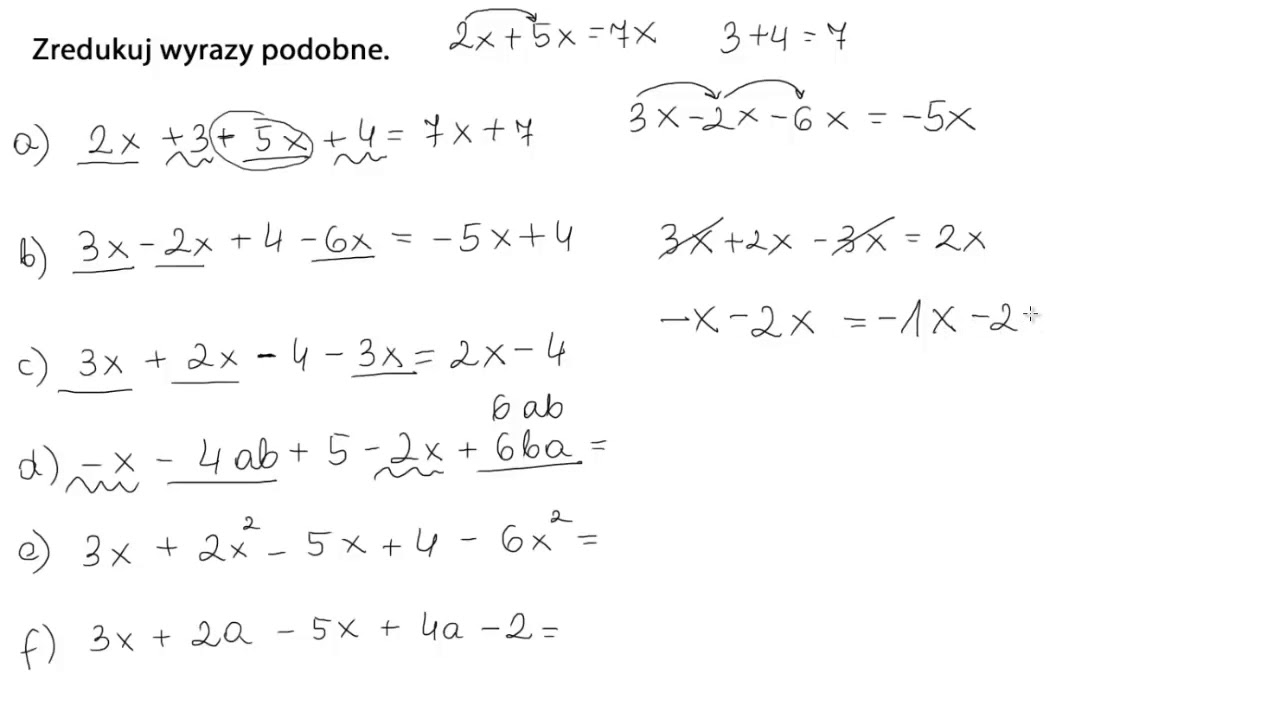 Zredukuj wyrazy podobne.
2x + 5x = 7x
3 + 4 = 7
a) 2x + 3 + 5x + 4 = 7x + 7
3x - 2x - 6x = -5x
b) 3x - 2x + 4 - 6x = -5x + 4
3x + 2x - 3x = 2x
-x - 2x = -1x - 2
c) 3x + 2x - 4 - 3x = 2x - 4
6 ab
d) -x - 4ab + 5 - 2x + 6ba =
e) 3x + 2x² - 5x + 4 - 6x² =
f) 3x + 2a - 5x + 4a - 2 =